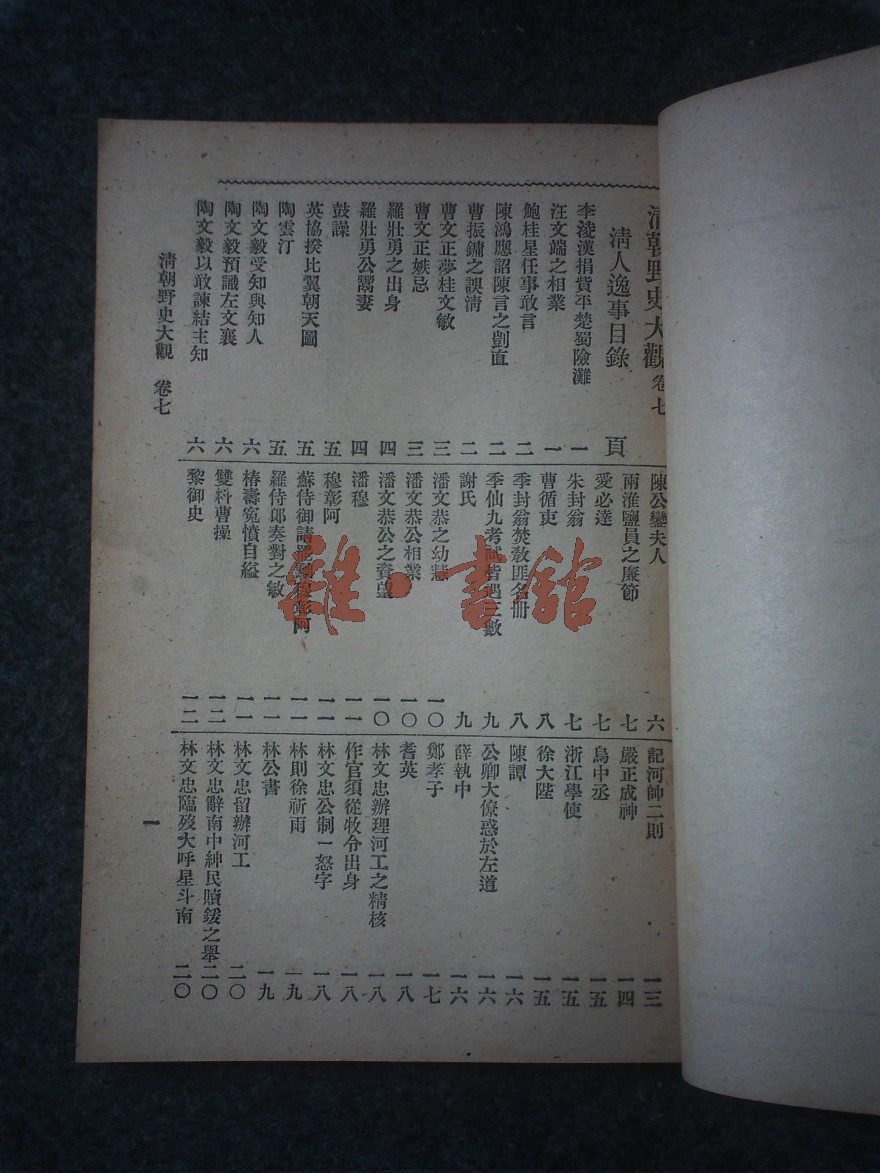 清朝野史大觀 卷七
清人逸事目錄 頁
李淩漢捐費平楚蜀險灘 一
汪文端之相業 一
鮑桂星任事敢言 二
陳鴻應詔陳言之剴直 二
曹振鏞之誤清 二
曹文正夢桂文敏 三
曹文正嫉忌 三
羅壯勇之出身 四
羅壯勇公鬻妻 四
鼓譟 五
英協揆比翼朝天圖 五
陶雲汀 五
陶文毅受知與知人 六
陶文毅預識左文襄 六
陶文毅以敢諫結主知 六
陳公鑾夫人 六
兩淮鹽員之廉節 七
愛必達 七
朱封翁 七
曹循吏 八
季封翁焚教匪名冊 八
季仙九考試皆遇三數 九
謝氏 九
潘文恭之幼慧 一〇
潘文恭公相業 一〇
潘文恭公之資望 一〇
潘穆 一一
穆彰阿 一一
蘇侍御請罷穆彰阿 一一
羅侍郎奏對之敏 一一
椿壽冤憤自縊 一一
雙料曹操 一二
黎御史 一二
記河帥二則 一三
嚴正成神 一四
鳥中丞 一五
浙江學使 一五
徐大陞 一五
陳譚 一六
公卿大僚惑於左道 一六
薛執中 一六
鄭孝子 一七
耆英 一八
林文忠辦理河工之精核 一八
作官須從牧令出身 一八
林文忠公制一怒字 一八
林則徐祈雨 一九
林公書 一九
林文忠留辦河工 二〇
林文忠辭南中紳民贖鍰之舉 二〇
林文忠臨歿大呼星斗南 二〇
清朝野史大觀 卷七
一
雜·書館